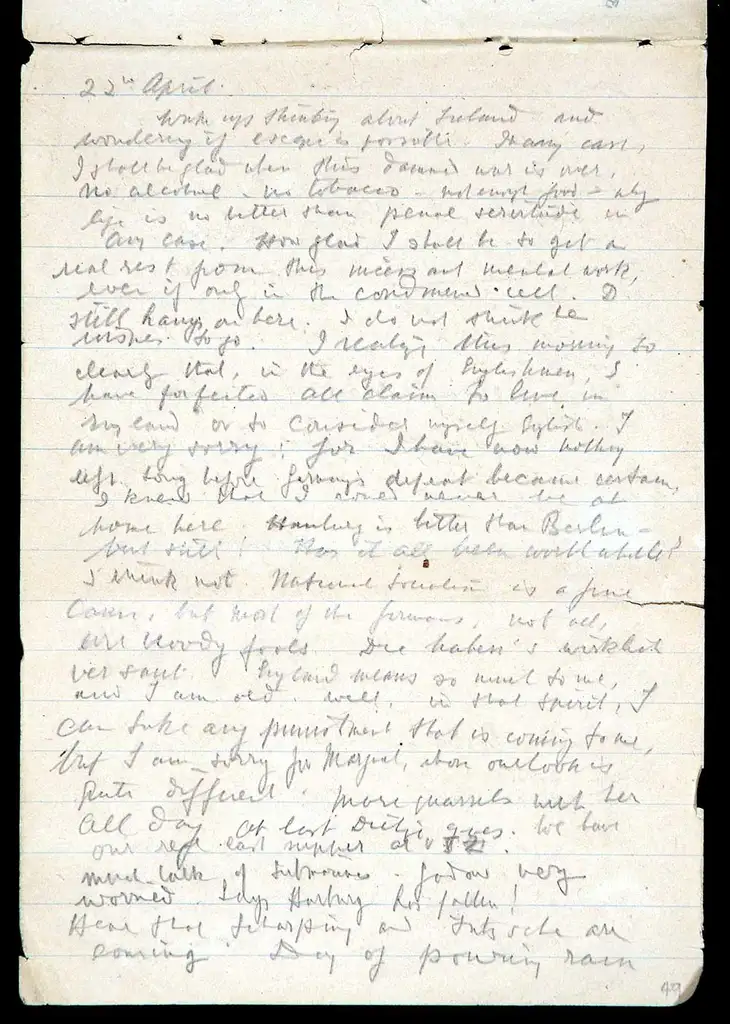 22nd April.
Wake up thinking about Ireland and
wondering if escape is possible. In any case,
I shall be glad when this damned war is over,
no alcohol - no tobacco - not enough food - my
life is no better than penal servitude in
any case. How glad I shall be to get a
real rest from this incessant mental work,
even if only in the condemned cell. D.
still hangs on here. I do not think he
wishes to go. I realize this morning so
clearly that, in the eyes of Englishmen, I
have forfeited all claim to live in
England or to consider myself English. I
am very sorry: for I have now nothing
left. Long before Germany's defeat became certain,
I knew that I could never be at
home here. Hamburg is better than Berlin -
but still! Has it all been worthwhile?
I think not. National Socialism is a fine
cause, but most of the Germans, not all,
are bloody fools. Die haben's wirklich
versaut. England means so much to me,
and I am old. Well, in that spirit, I
can take any punishment that is coming to me,
but I am sorry for Margaret, whose outlook is
quite different. More quarrels with her
all day. At last Dietze goes. We have
our last supper at
much talk of submarines. very
worried. Says Harburg has fallen!
Hear that Scharping and are
coming. Day of pouring rain
49